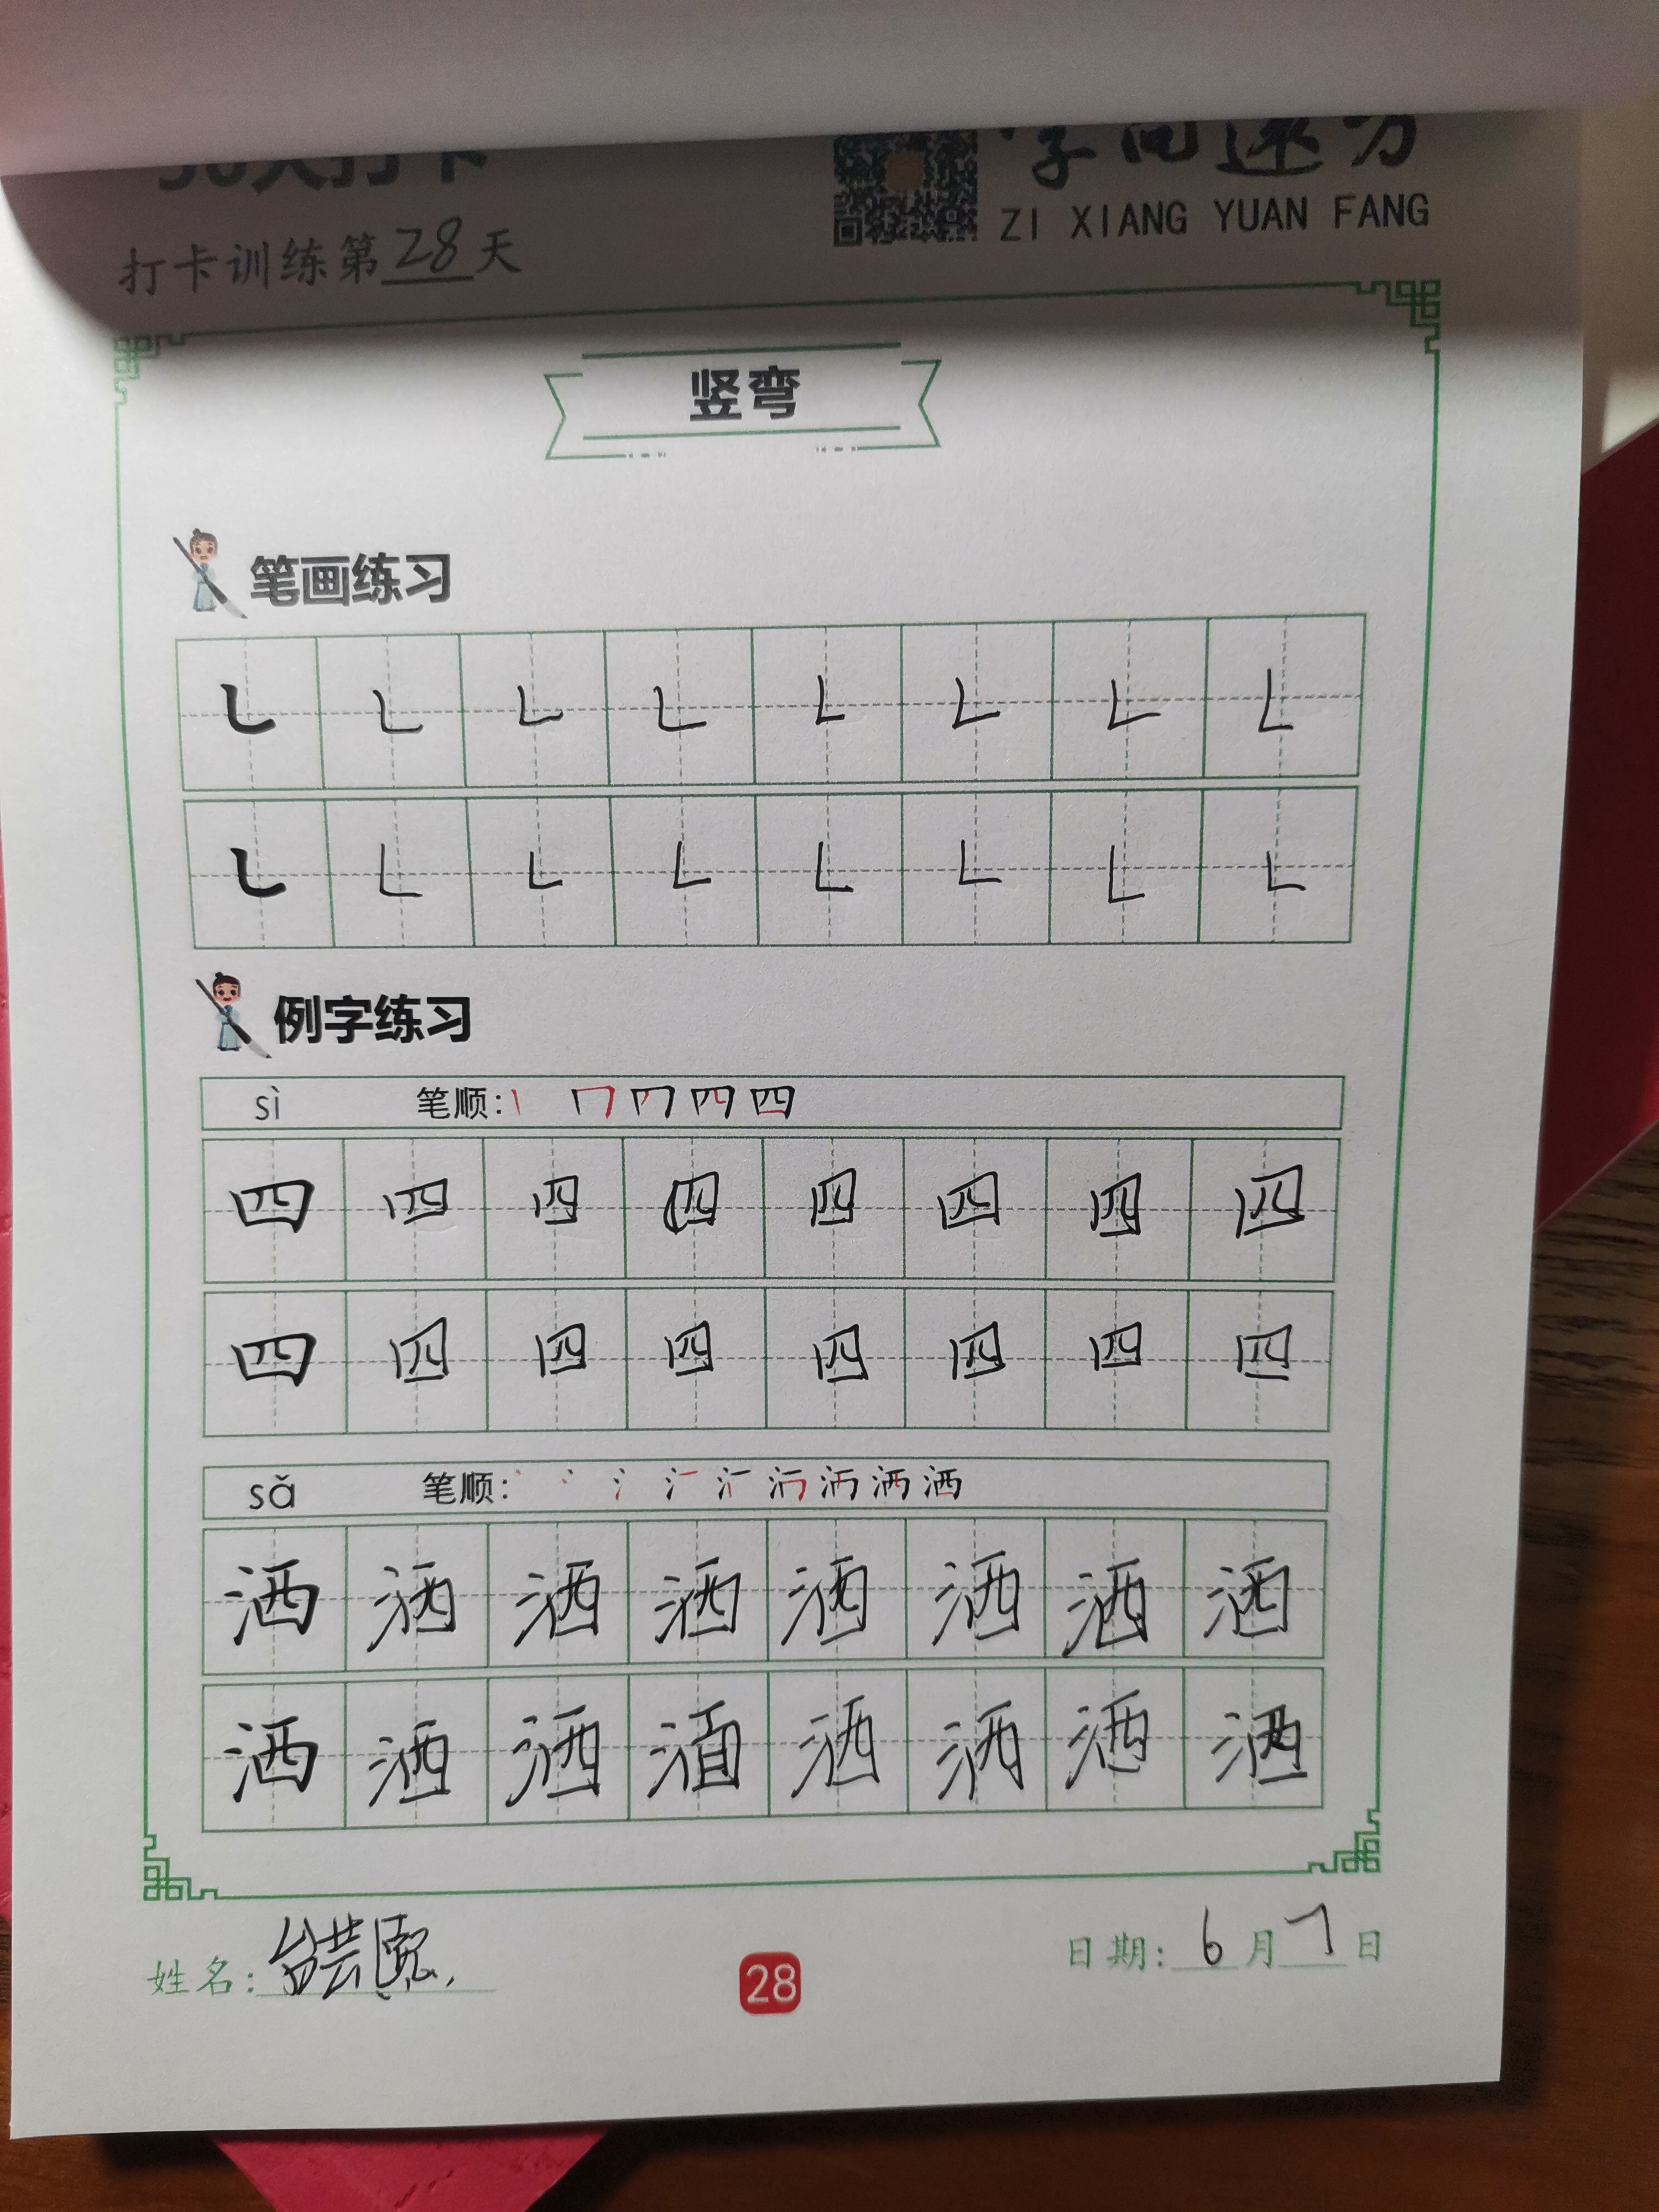 打卡训练第28天
ZI XIANG YUAN FANG
竖弯
笔画练习
例字练习
sì 笔顺:
四 四 四 四 四 四 四 四
四 四 四 四 四 四 四 四
sǎ 笔顺:
洒 洒 洒 洒 洒 洒 洒 洒
洒 洒 洒 洒 洒 洒 洒 洒
姓名:
28
日期: 6 月 7 日